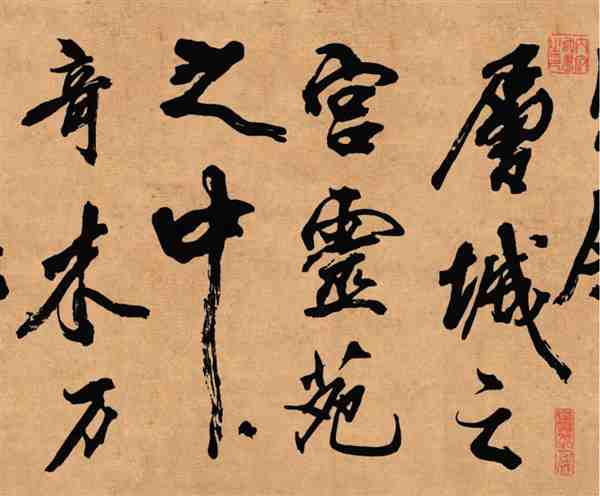 層城之
宮靈苑
之中
奇木万